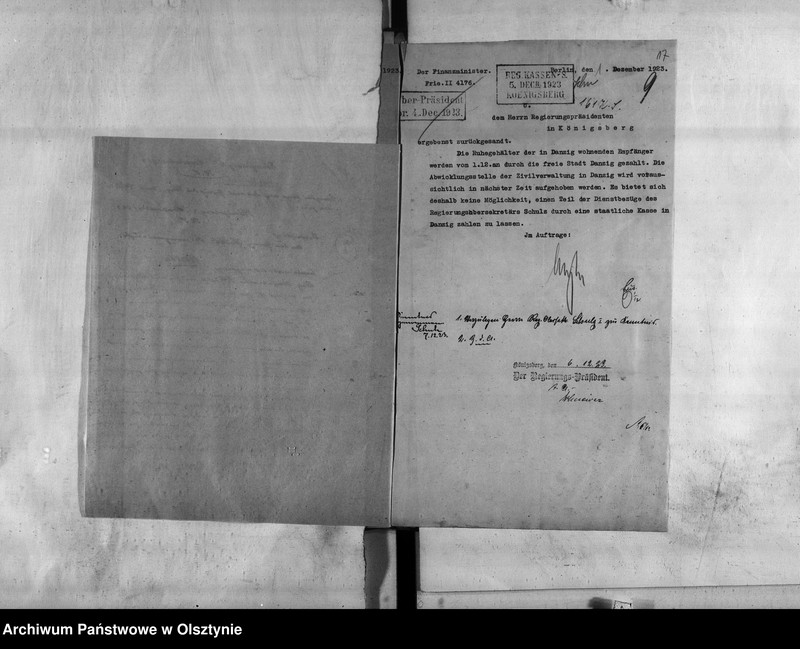 17
1923.
Der Finanzminister.
Berlin, den 1. Dezember 1923.
Frie.II 4176.
REG. KASSEN-S.
5. DECB. 1923
KOENIGSBERG
9
ber-Präsident
pr. 4. Dez. 1923.
dem Herrn Regierungspräsidenten
in Königsberg
ergebenst zurückgesandt.
Die Ruhegehälter der in Danzig wohnenden Empfänger
werden vom 1.12.an durch die freie Stadt Danzig gezahlt. Die
Abwicklungsstelle der Zivilverwaltung in Danzig wird voraus-
sichtlich in nächster Zeit aufgehoben werden. Es bietet sich
deshalb keine Möglichkeit, einen Teil der Dienstbezüge des
Regierungsobersekretärs Schulz durch eine staatliche Kasse in
Danzig zahlen zu lassen.
Jm Auftrage:
1. Herrn Reg. Obersekr. Schulz I zur Kenntnis.
Schulz
7.12.23.
2. z. d. A.
Königsberg, den 6. 12. 23.
Der Regierungs-Präsident.
Archiwum Państwowe w Olsztynie